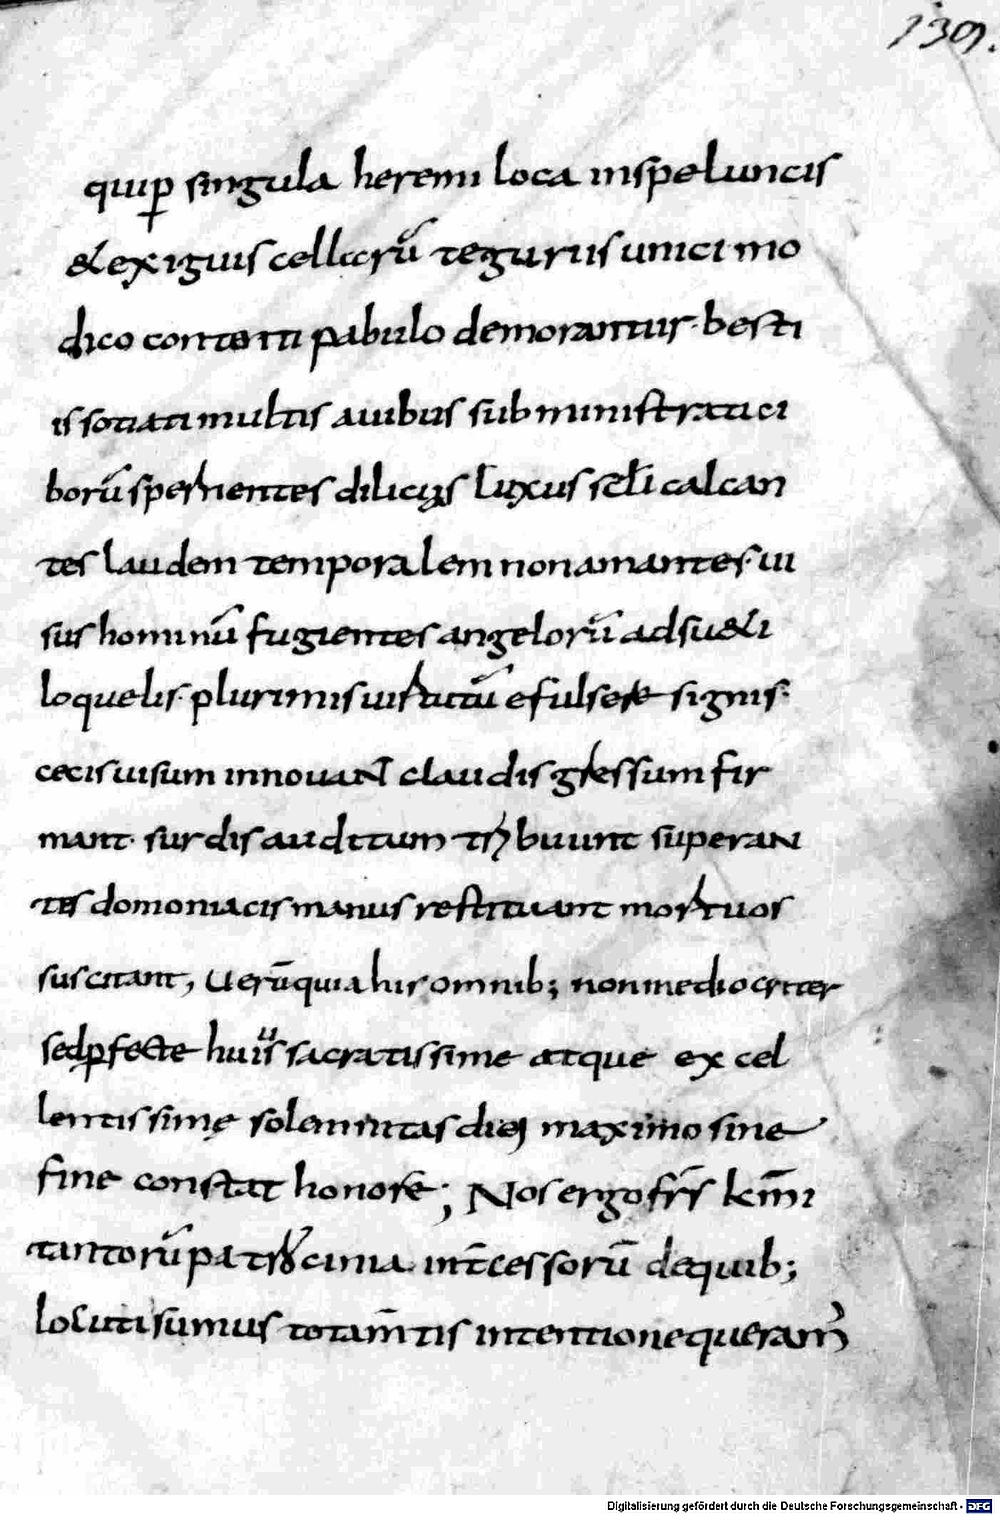 139.
quip̱ singula heremi loca inspeluncis
& exiguis cellarū teguriis unici mo
dico contenti pabulo demorantur· besti
is sotiati multis auibus subministrati ci
borū spernentes dilicias luxus sc̄li calcan
tes laudem temporalem non amantes· ui
sus hominū fugientes angelorū adsu&i
loquelis· plurimis uirtutū efulsere signis·
cecis uisum innouant claudis gressum fir
mant· surdis auditum tribuunt superan
tes domoniacis manus restituant mortuos
suscitant, Uerū quia his omnib; non mediocriter
sed p̱fecte huius sacratissime atque excel
lentissimę solemnitas diei maximo sine
fine constat honore; Nos ergo fr̄s km̄i
tantorū patrocinia int̄cessorū de quib;
locuti sumus tota m̄tis intentione queram̄
Digitalisierung gefördert durch die Deutsche Forschungsgemeinschaft - DFG